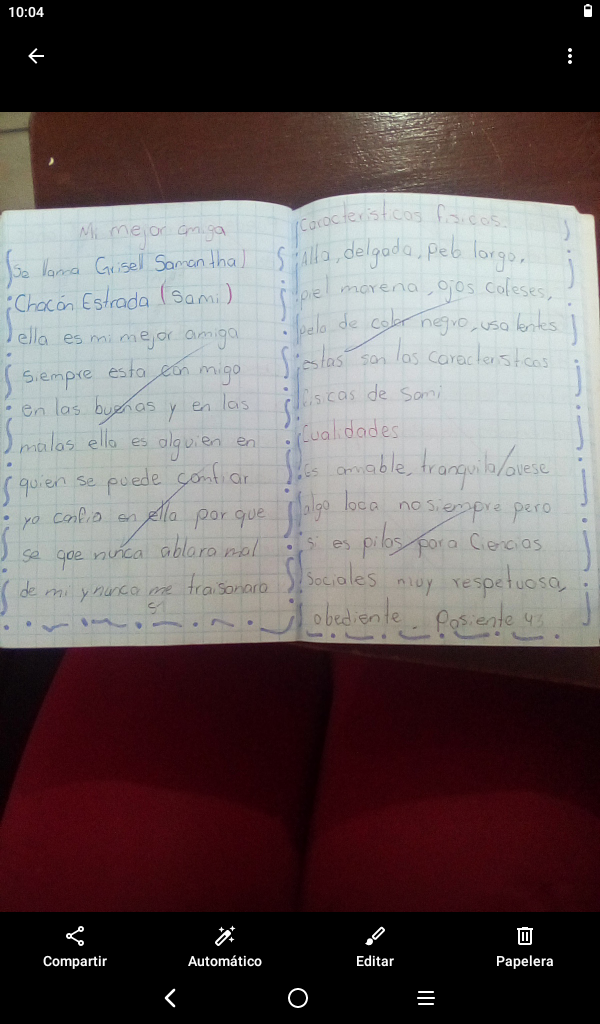 10:04
Mi mejor amiga
Se llama Grisell Samantha
Chacón Estrada (Sami)
ella es mi mejor amiga
siempre esta con migo
en las buenas y en las
malas ella es alguien en
quien se puede confiar
yo confio en ella por que
se que nunca ablara mal
de mi y nunca me traisonara
51
Caracteristicas fisicas.
Alta, delgada, pelo largo,
piel morena, ojos cafeses,
pelo de color negro, usa lentes
estas son las caracteristicas
fisicas de Sami
Cualidades
Es amable, tranquila/avese
algo loca no siempre pero
si es pilas para Ciencias
sociales muy respetuosa,
obediente. Pasiente y
Compartir
Automático
Editar
Papelera